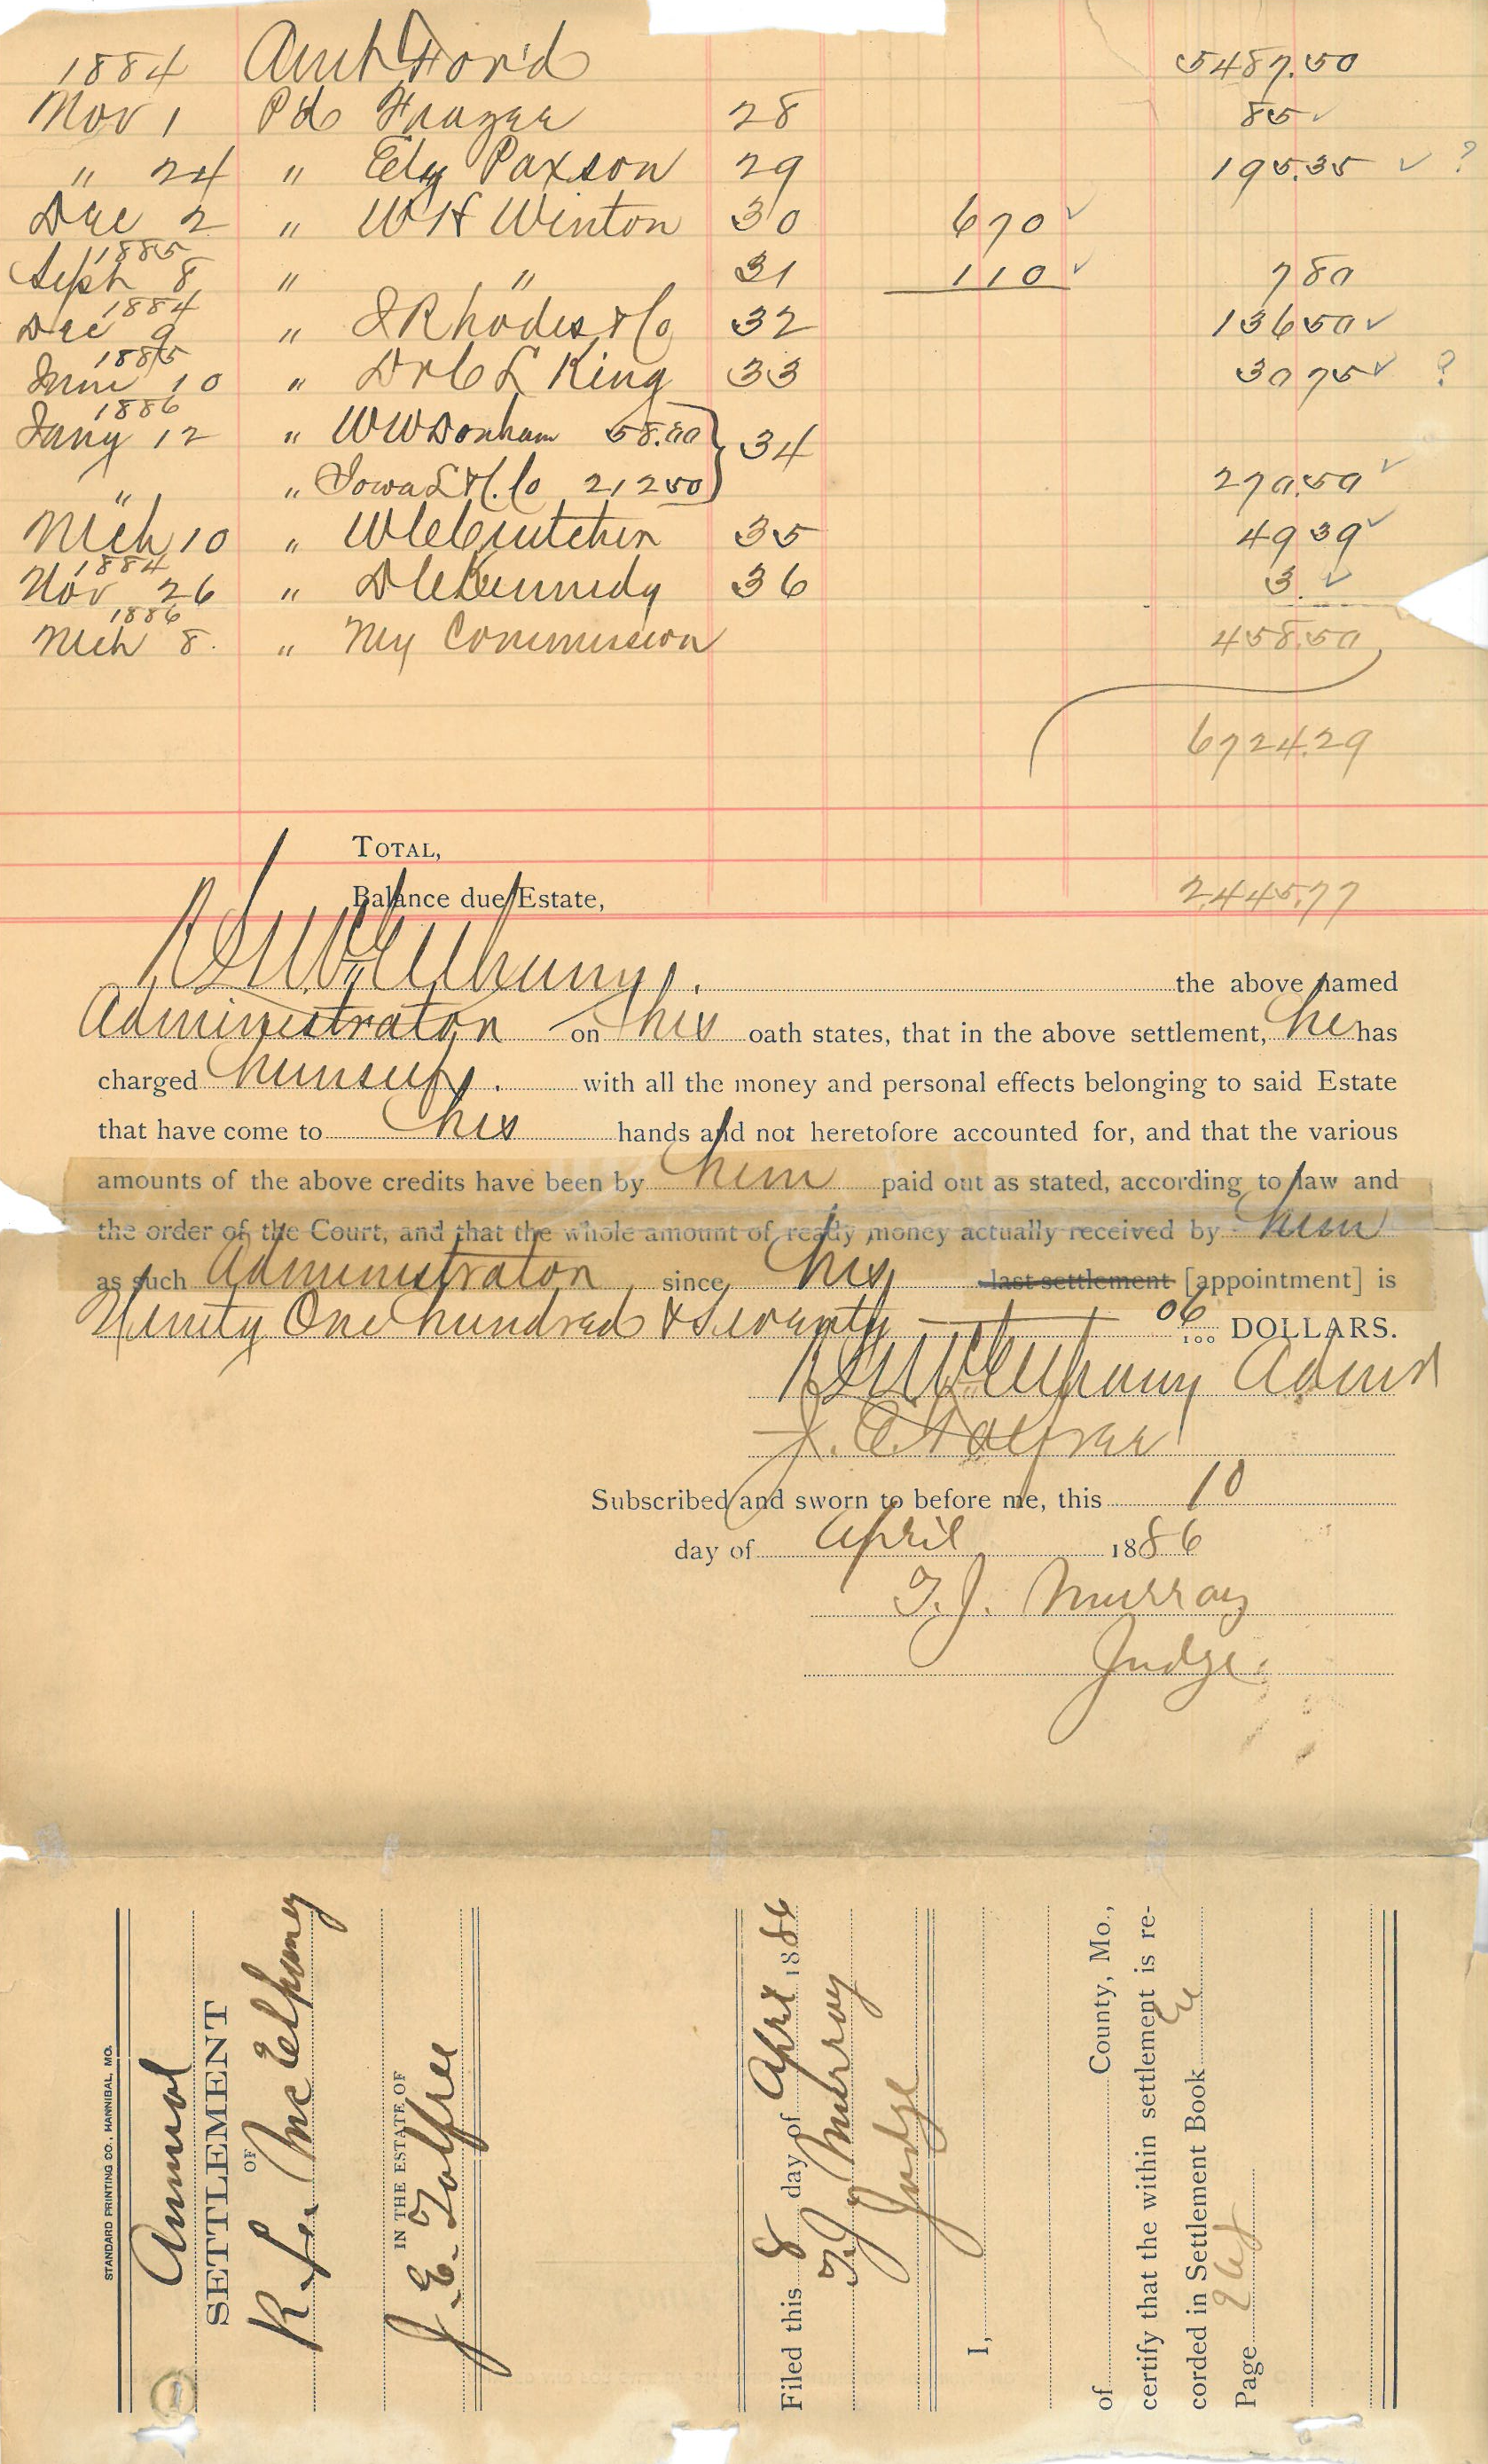 1884 Amt Ford 5487.50
Nov 1 Pd Frazee 28 85
" 24 " Ely Paxson 29 195.35 ?
Dec 2 " W H Winton 30 670
1885
Sept 8 " " 31 110 780
1884
Dec 9 " J Rhodes & Co 32 13650
1885
June 10 " Dr C L King 33 3075 ?
1886
Jany 12 " W W Donham 58.00 34
" " Iowa L & Co 21250 270.50
Mch 10 " 35 4939
1884
Nov 26 " D C Kennedy 36 3.
1886
Mch 8. " My Commission 458.50
6724.29
TOTAL,
Balance due Estate, 2445.77
R L McElhany. the above named
Administrator on his oath states, that in the above settlement, he has
charged himself. with all the money and personal effects belonging to said Estate
that have come to his hands and not heretofore accounted for, and that the various
amounts of the above credits have been by him paid out as stated, according to law and
the order of the Court, and that the whole amount of ready money actually received by him
as such Administrator since his last settlement [appointment] is
Ninety One hundred & Seventy 06/100 DOLLARS.
R L McElhany Admr
J. E. Tolfree
Subscribed and sworn to before me, this 10
day of April 1886
T. J. Murray
Judge.
STANDARD PRINTING CO., HANNIBAL, MO.
Annual
SETTLEMENT
OF
R. L. McElhany
IN THE ESTATE OF
J. E. Tolfree
Filed this 8 day of Aprl 1886
T J Murray
Judge
I,
of County, Mo.,
certify that the within settlement is re-
corded in Settlement Book E
Page
1